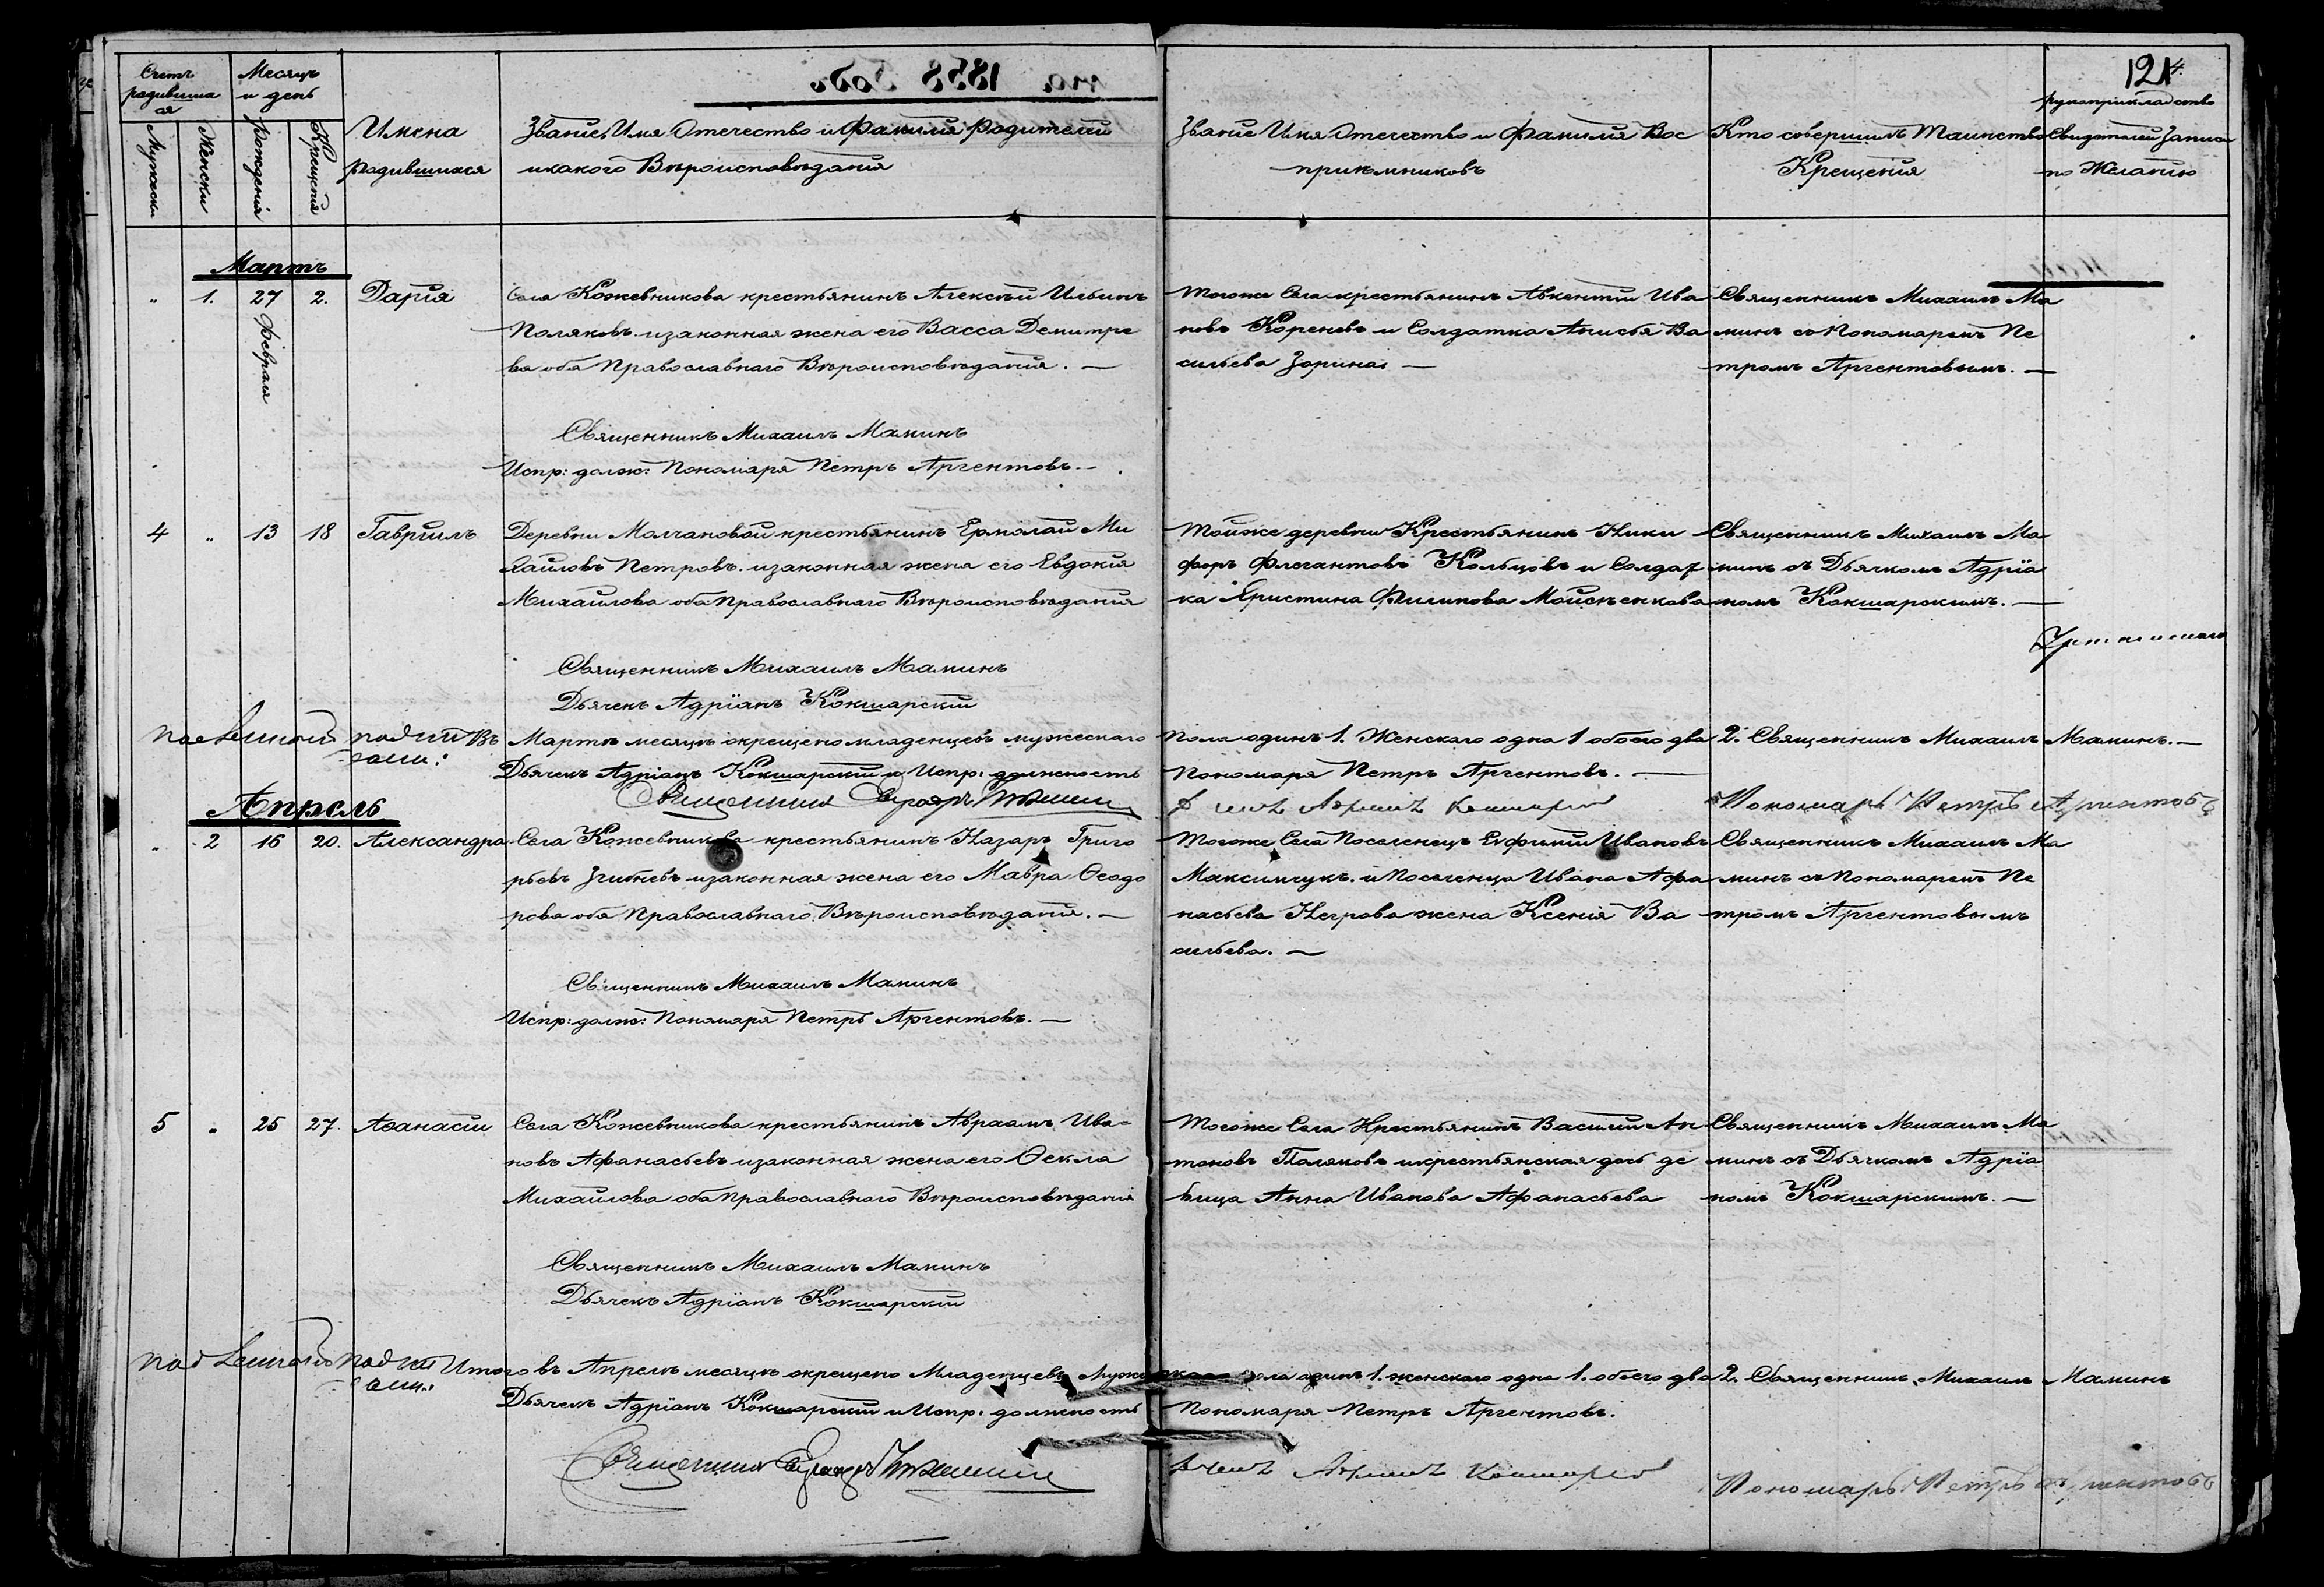 на 1858 Годъ
124.
Счетъ родившихся
Месяцъ и день
Мужески
Женски
Рожденія
Крещенія
Имена
родившихся
Званіе, Имя Отечество и Фамилія Родителей
и какого Вѣроисповѣданія
Званіе Имя Отечество и Фамилія Вос
приемниковъ
Кто совершилъ Таинство
Крещенія
рукоприкладство
Свидетелей
по Желанію
Мартъ
" 1. 27 февраля 2. Дарія
Села Кожевникова крестьянинъ Алексѣй Ильинъ
Поляковъ и законная жена его Васса Демитре
ва оба Православнаго Вѣроисповѣданія. —
Тогоже Села крестьянинъ Авкентій Ива
новъ Кореневъ и Солдатка Анисья Ва
сильева Зорина. —
Священникъ Михаилъ Ма
минъ съ Пономаремъ Пе
тромъ Аргентовымъ. —
Священникъ Михаилъ Маминъ
Испр: долж: Пономаря Петръ Аргентовъ. —
4 " 13 18 Гавріилъ
Деревни Молчановой крестьянинъ Ермолай Ми
хайловъ Петровъ. и законная жена его Евдокія
Михайлова оба Православнаго Вѣроисповѣданія
Тойже деревни Крестьянинъ Ники
форъ Флегантовъ Кольцовъ и Солдат
ка Христина Филипова Мойсѣенкова
Священникъ Михаилъ Ма
минъ съ Дьячкомъ Адріа
номъ Кокшарскимъ. —
Священникъ Михаилъ Маминъ
Дьячекъ Адріанъ Кокшарскій
Въ Мартѣ месяцѣ окрещено младенцевъ мужескаго пола одинъ 1. Женскаго одна 1 обоего два 2. Священникъ Михаилъ Маминъ. —
Дьячекъ Адріанъ Кокшарскій и Испр: должность Пономаря Петръ Аргентовъ. —
Священникъ
Пономарь Петръ Аргентовъ
Апрель
" 2 16 20. Александра
Села Кожевникова крестьянинъ Назаръ Григо
рьевъ и законная жена его Мавра Ѳеодо
рова оба Православнаго Вѣроисповѣданія. —
Тогоже Села Поселенецъ Евфимій Ивановъ
Максимчукъ. и Поселенца Ивана Афа
насьева Негрова жена Ксенія Ва
сильева. —
Священникъ Михаилъ Ма
минъ съ Пономаремъ Пе
тромъ Аргентовымъ
Священникъ Михаилъ Маминъ
Испр: долж: Пономаря Петръ Аргентовъ. —
5 " 25 27. Аѳанасій
Села Кожевникова крестьянинъ Авраамъ Ива=
новъ Афанасьевъ и законная жена его Ѳекла
Михайлова оба Православнаго Вѣроисповѣданія
Тогоже Села Крестьянинъ Василій Ан
тоновъ Поляковъ и крестьянская дочь де
вица Анна Иванова Афанасьева
Священникъ Михаилъ Ма
минъ съ Дьячкомъ Адріа
номъ Кокшарскимъ. —
Священникъ Михаилъ Маминъ
Дьячекъ Адріанъ Кокшарскій
Итого въ Апрелѣ месяцѣ окрещено Младенцевъ Мужескаго пола одинъ 1. женскаго одна 1. обоего два 2. Священникъ Михаилъ Маминъ
Дьячекъ Адріанъ Кокшарскій и Испр: должность Пономаря Петръ Аргентовъ.
Священникъ
Пономарь Петръ Аргентовъ